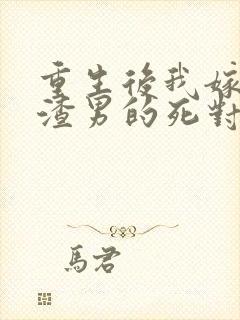 重生後我嫁
渣男的死對
馬君